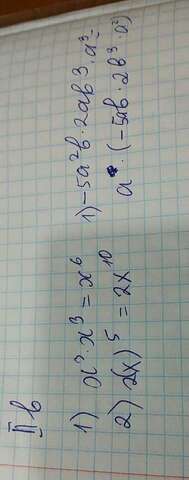 II в
1) x² · x³ = x⁶
2) 2(x)⁵ = 2x¹⁰
1) -5a²b · 2ab³ · a³ =
a · (-5ab · 2b³ · a²)